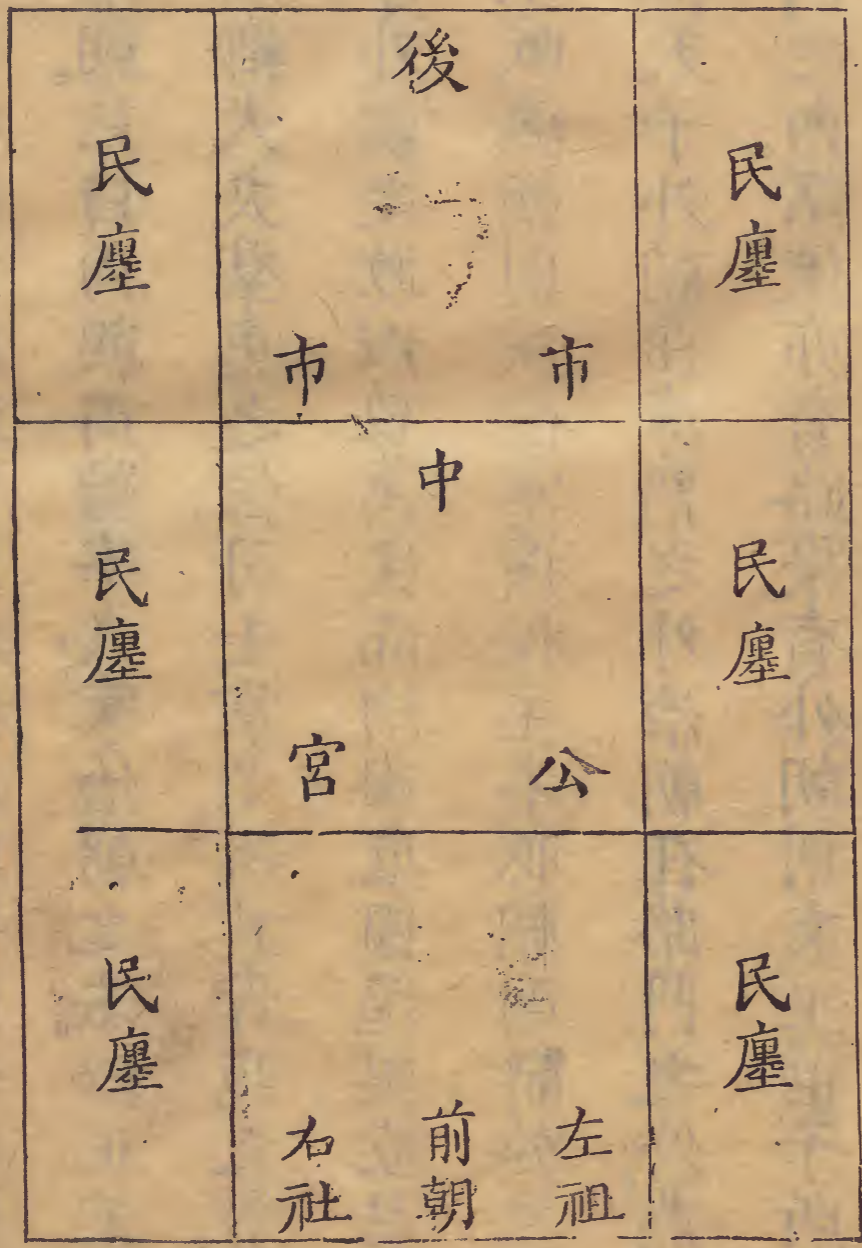 民廛
後
市
市
民廛
民廛
中
公
宮
民廛
民廛
左祖
前朝
右社
民廛